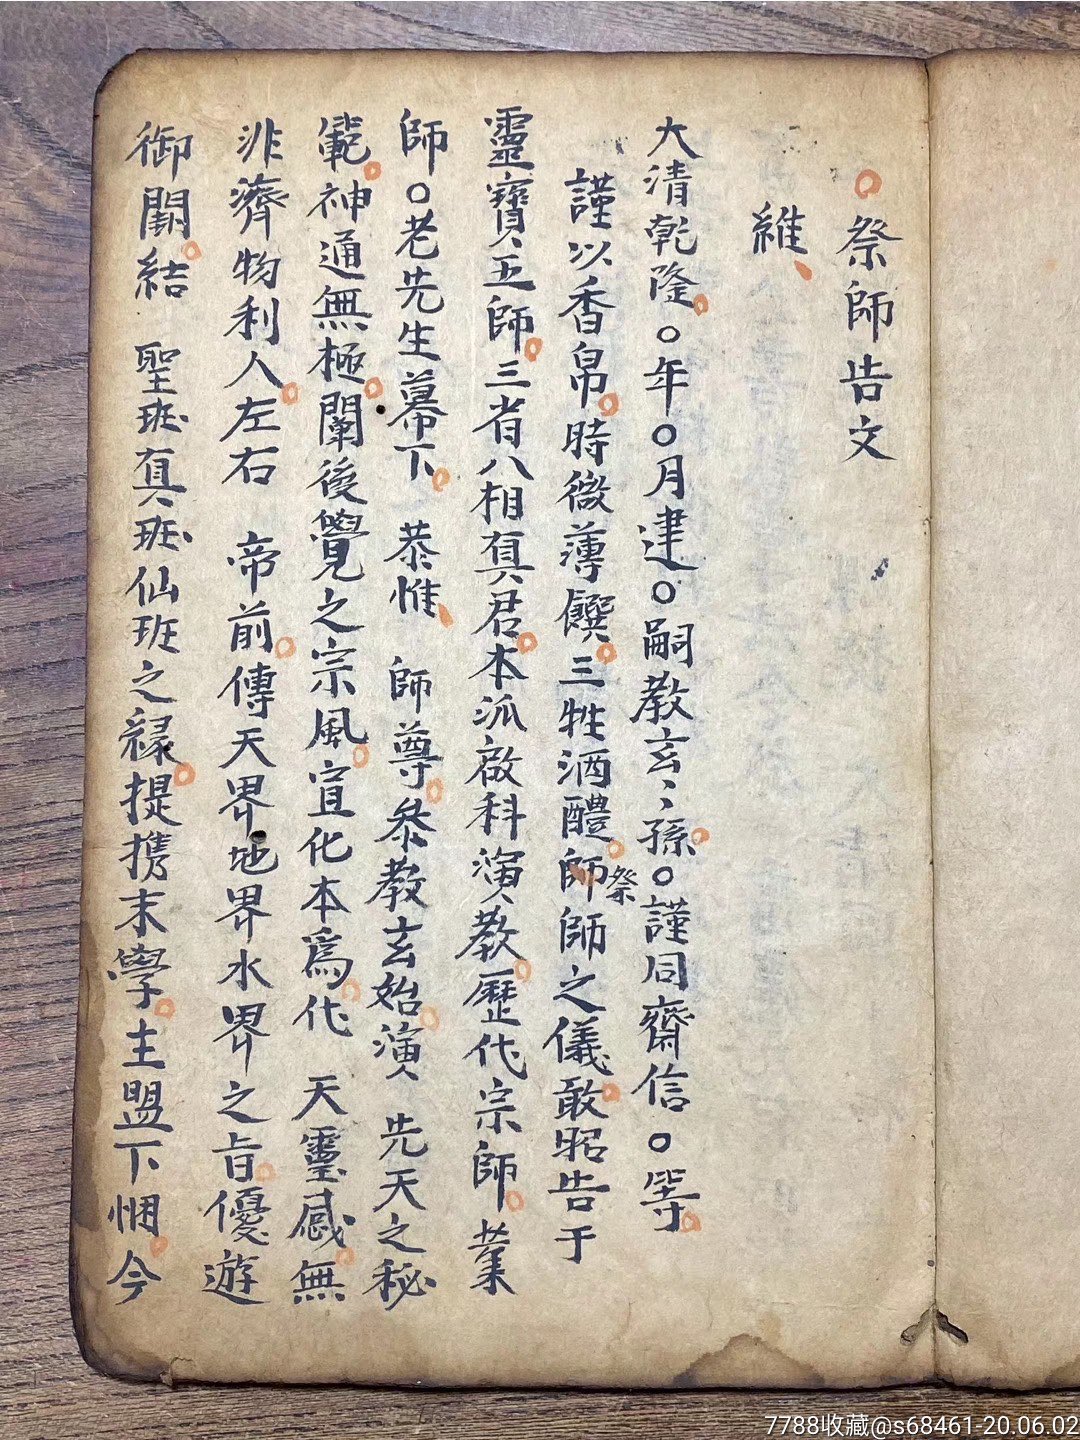 ○祭師告文
維、
大清乾隆。○年○月建○嗣教玄々孫。○謹同齋信○等。
謹以香帛。時微薄饌。三牲酒醴。師祭師之儀。敢昭告于
靈寶五師。三省八相真君。本派啟科演教。歷代宗師。業
師○老先生幕下。 恭惟、 師尊。叅教玄始。演 先天之秘
範。神通無極。闡後覺之宗風。宣化本爲。代 天靈感。無
非濟物利人。左右 帝前。傳天界地界水界之旨。優遊
御闕。結 聖班真班仙班之緣。提携末學。主盟下悃。今
7788收藏@s68461-20.06.02